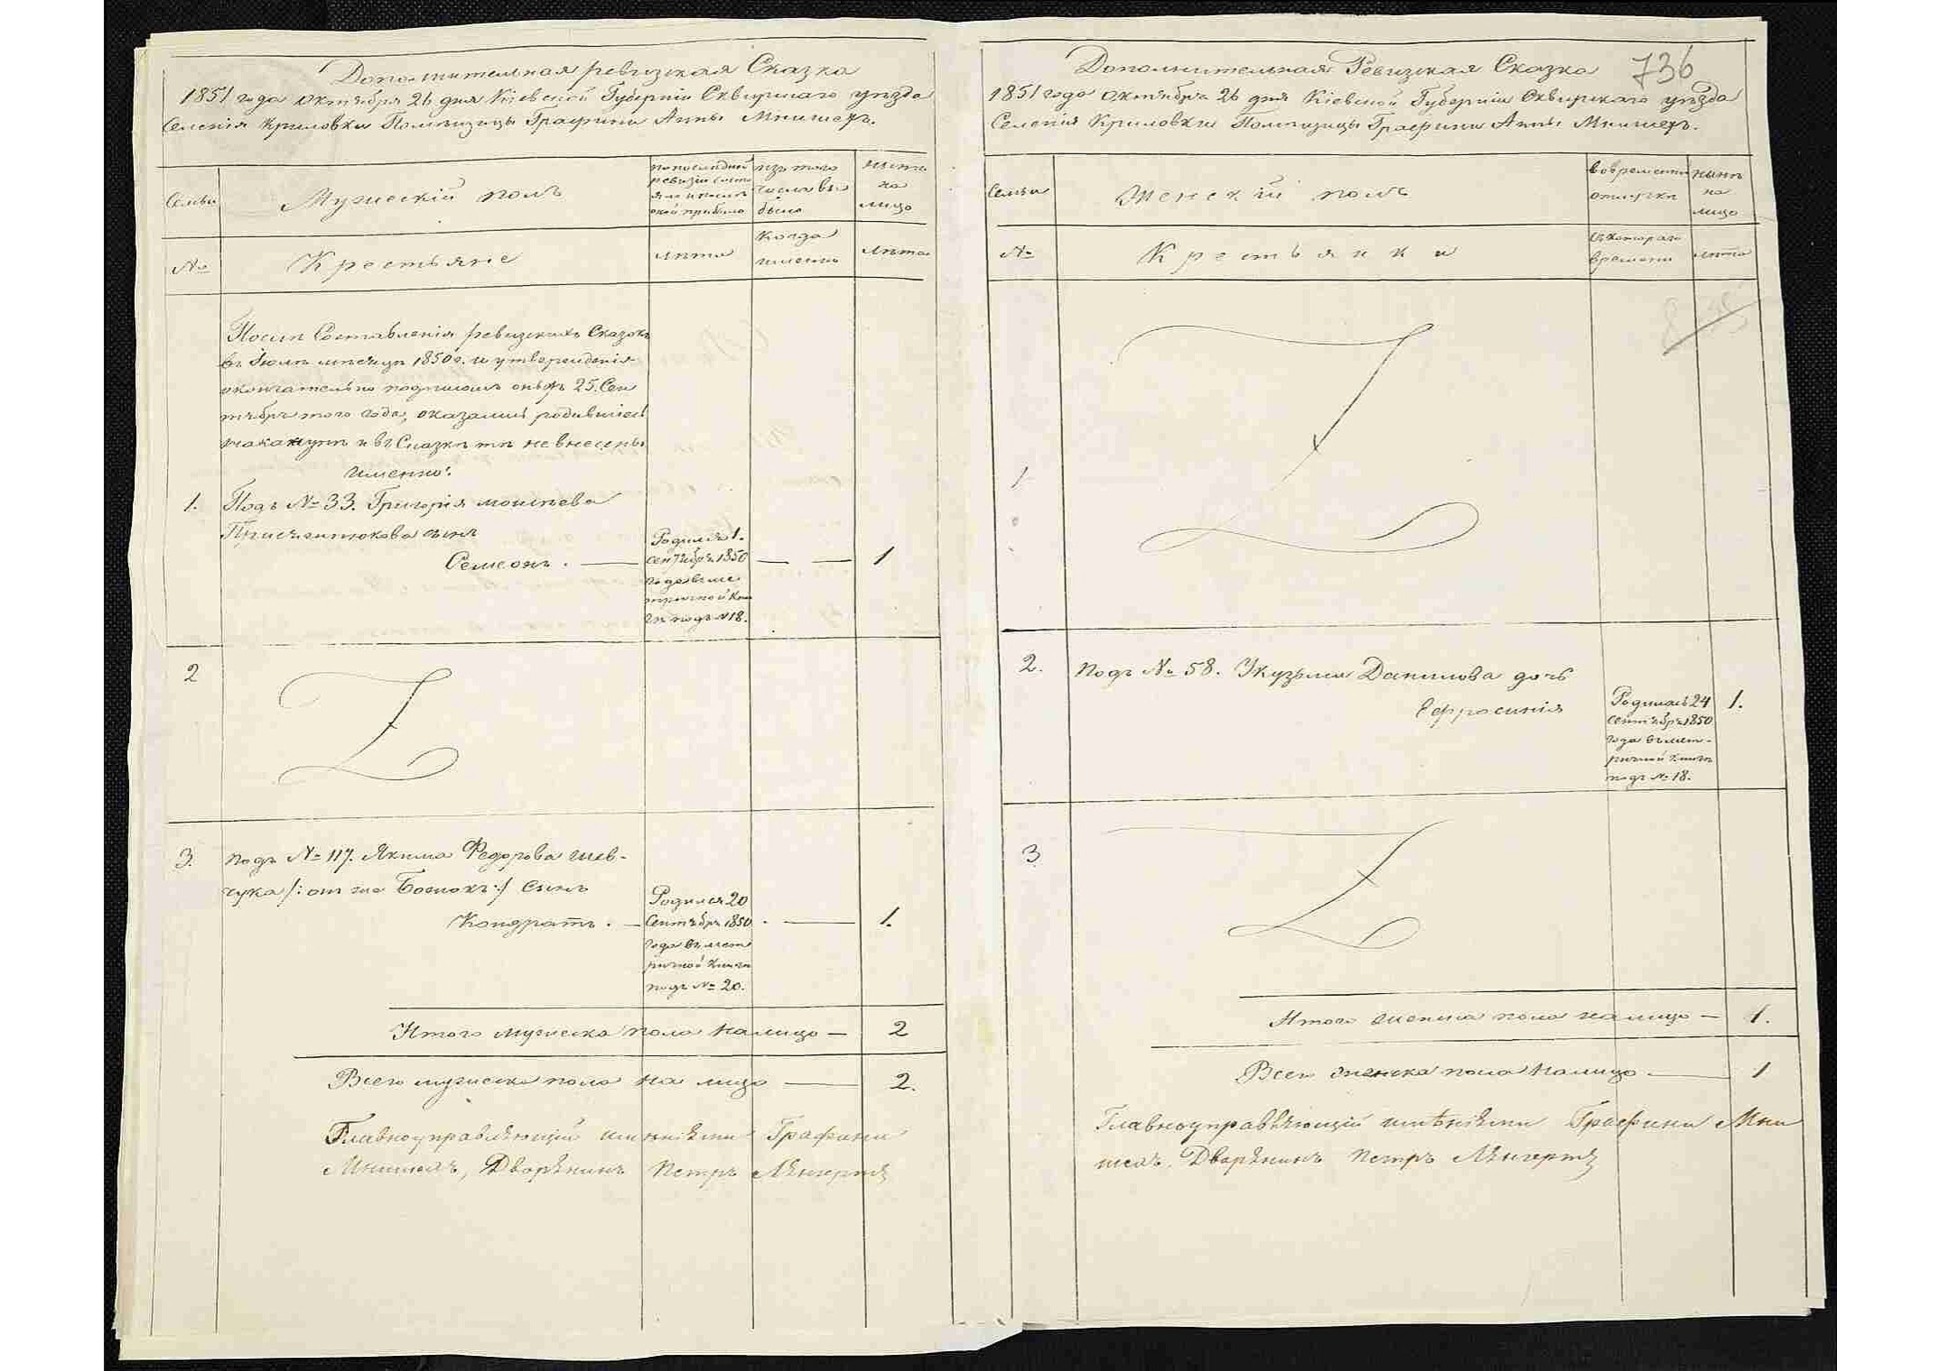 Дополнительная ревизская Сказка
1851 года октября 26 дня Кіевской Губерніи Сквирскаго уѣзда
Селенія Криловки Помѣщицы Графини Анны Мнишехъ.
Семьи
Мужескій полъ
по последней
ревизіи состо
было
изъ того
числа вы
было
нынѣ
на
лицо
№
Крестьяне
лѣта
Когда
именно
лѣта
Послѣ Составленія ревизскихъ Сказокъ
въ Іюлѣ мѣсяцѣ 1850 г. и утвержденія
окончательно подписомъ оныхъ 25. Сен
тября того года, оказались родившіеся
накануне и въ Сказки тѣ не внесены
именно:
1.
Подъ № 33. Григорія Моисѣева
сынъ
Семеонъ. —
Родился 1.
сентября 1850
года въ ме
трической Кни
гѣ подъ № 18.
— —
1
2
3.
подъ № 117. Якима Федорова Шев-
чука /: онъ же :/ сынъ
Кондратъ. —
Родился 20
Сентября 1850
года въ мет
рической Книгѣ
подъ № 20.
. —
1.
Итого мужеска пола налицо —
2
Всего мужеска пола на лицо —
2.
Главноуправляющій имѣніями Графини
Мнишехъ, Дворянинъ Петръ
Дополнительная Ревизская Сказка
736
1851 года октября 26 дня Кіевской Губерніи Сквирскаго уѣзда
Селенія Криловки Помѣщицы Графини Анны Мнишехъ.
Семьи
Женскій полъ
во временной
отлучкѣ
нынѣ
на
лицо
№
Крестьянки
съ котораго
времени
лѣта
1
2.
Подъ № 58. У Кузьмы Данилова дочь
Ефросинія
Родилась 24
Сентября 1850
года въ мет-
рической Книгѣ
подъ № 18.
1.
3
Итого женска пола налицо —
1.
Всего женска пола налицо —
1
Главноуправляющій имѣніями Графини Мни
шехъ, Дворянинъ Петръ